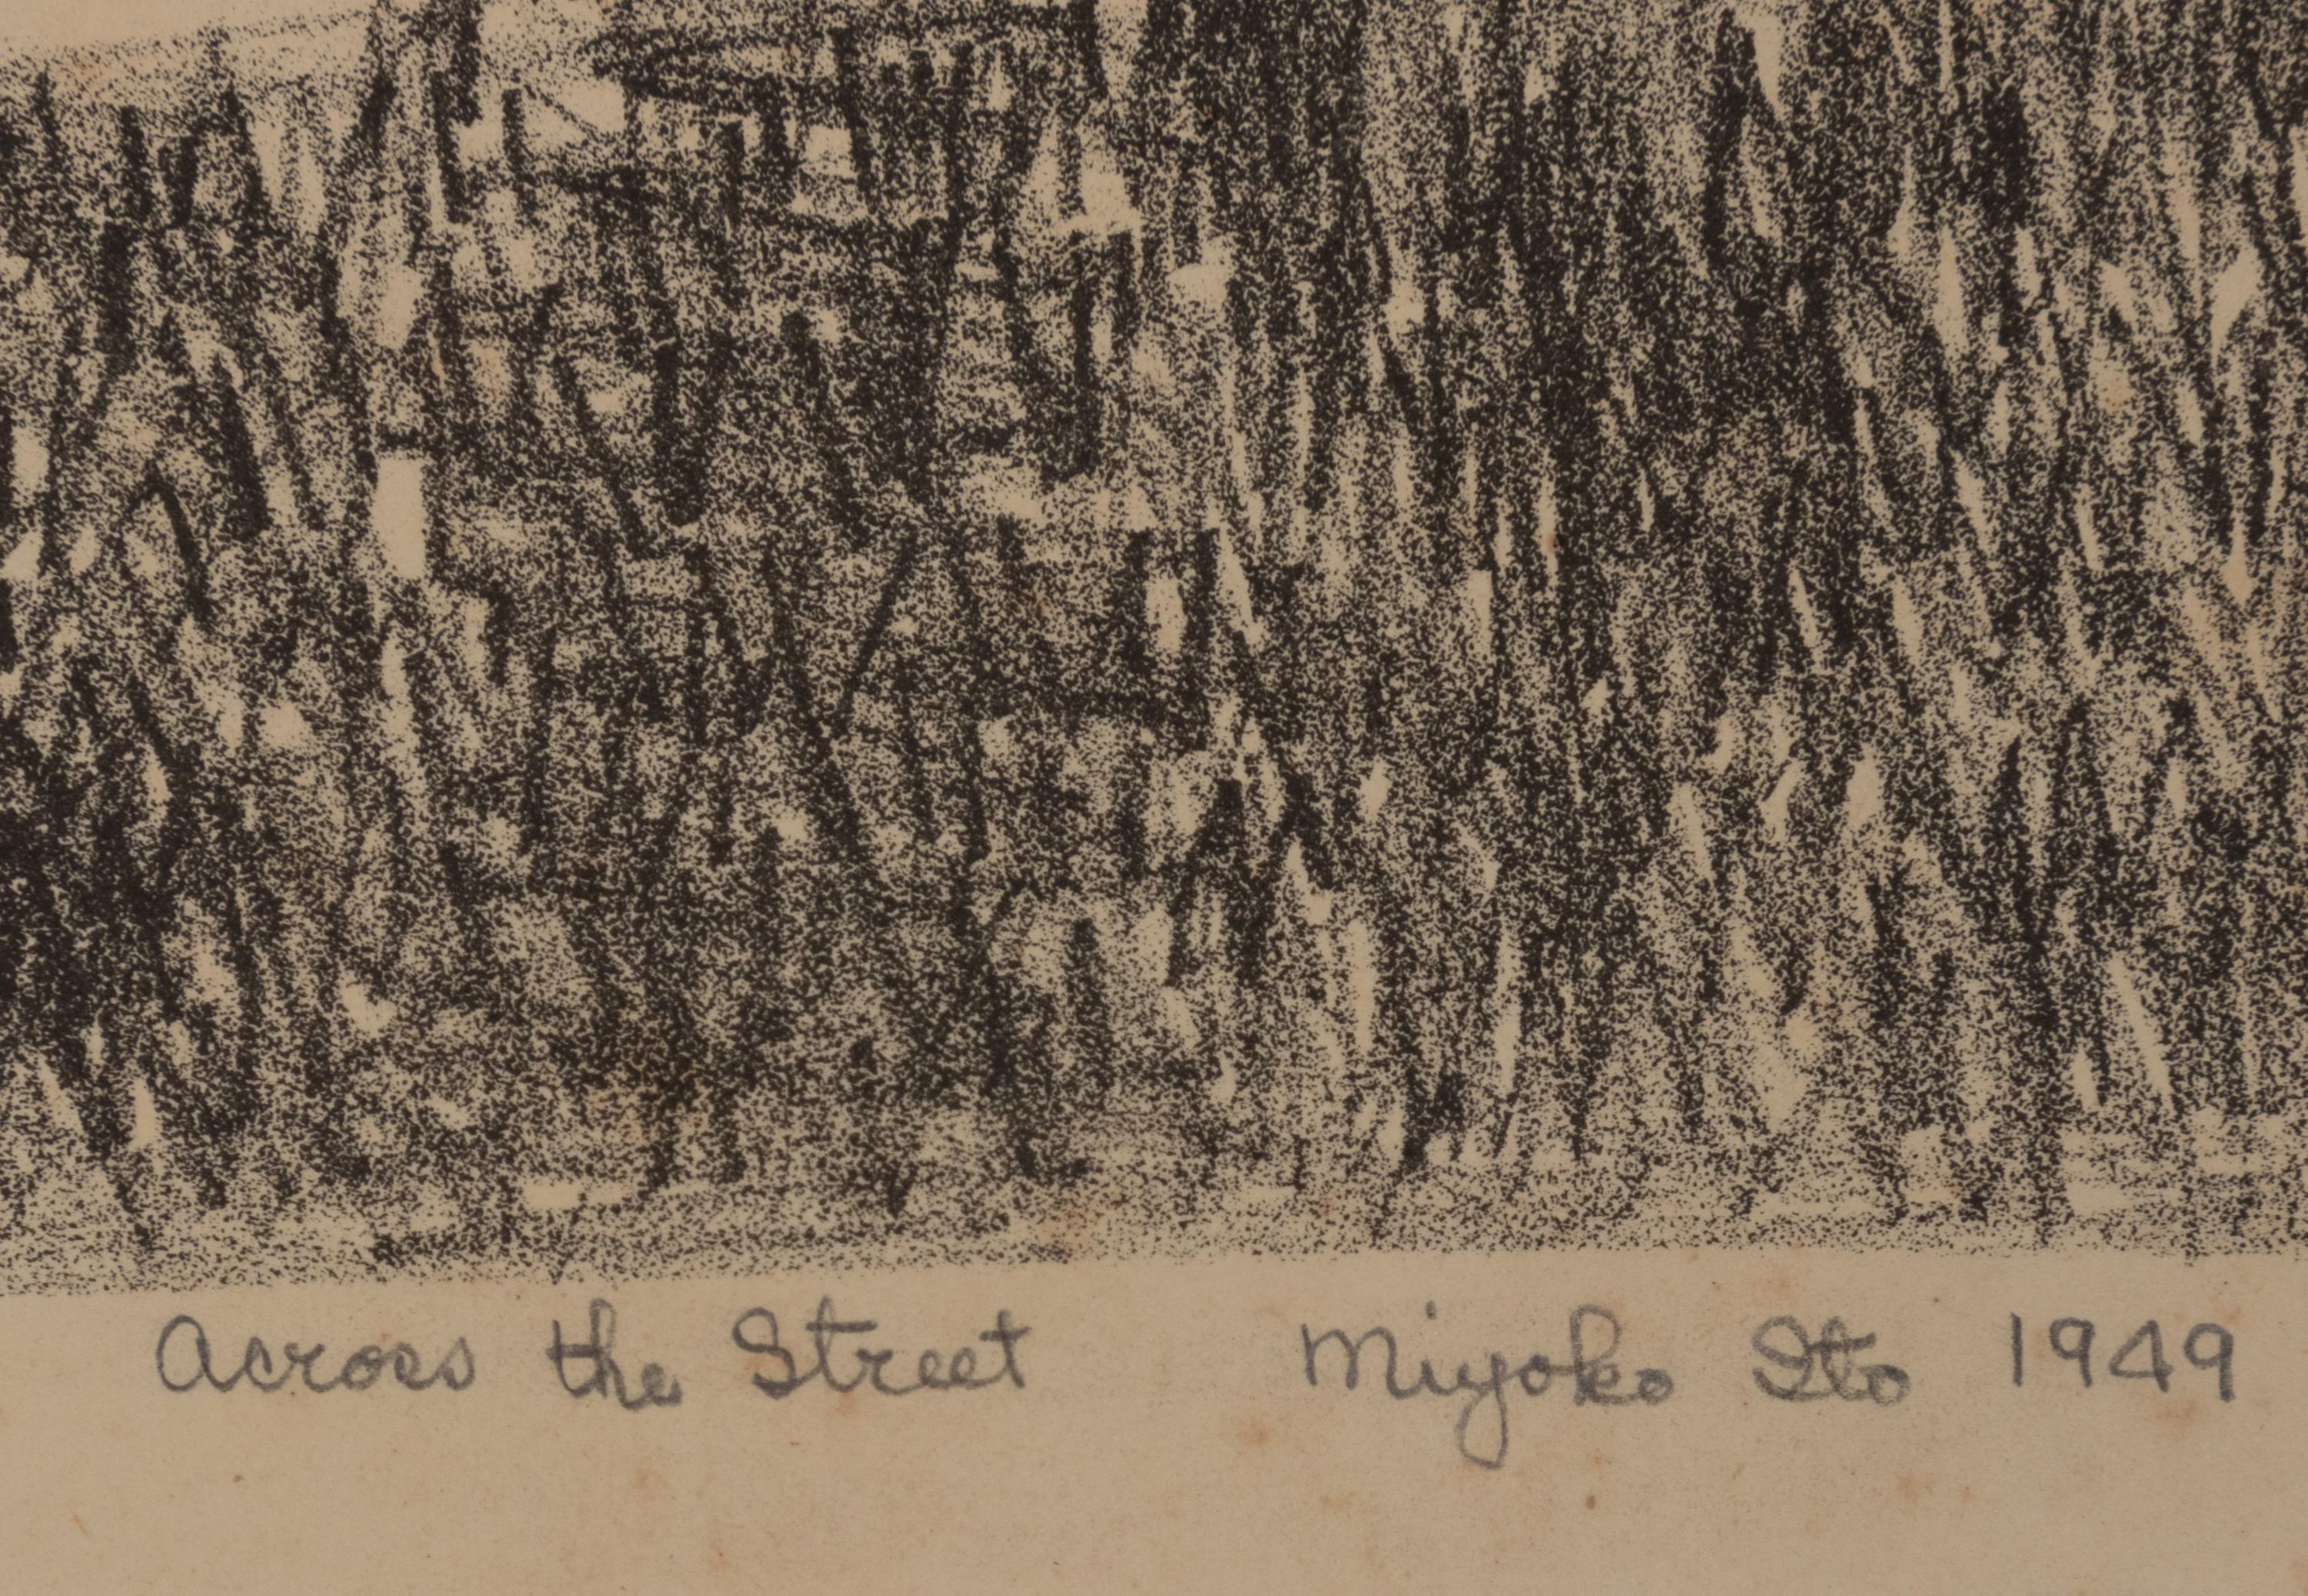 Across the Street Miyoko Ito 1949